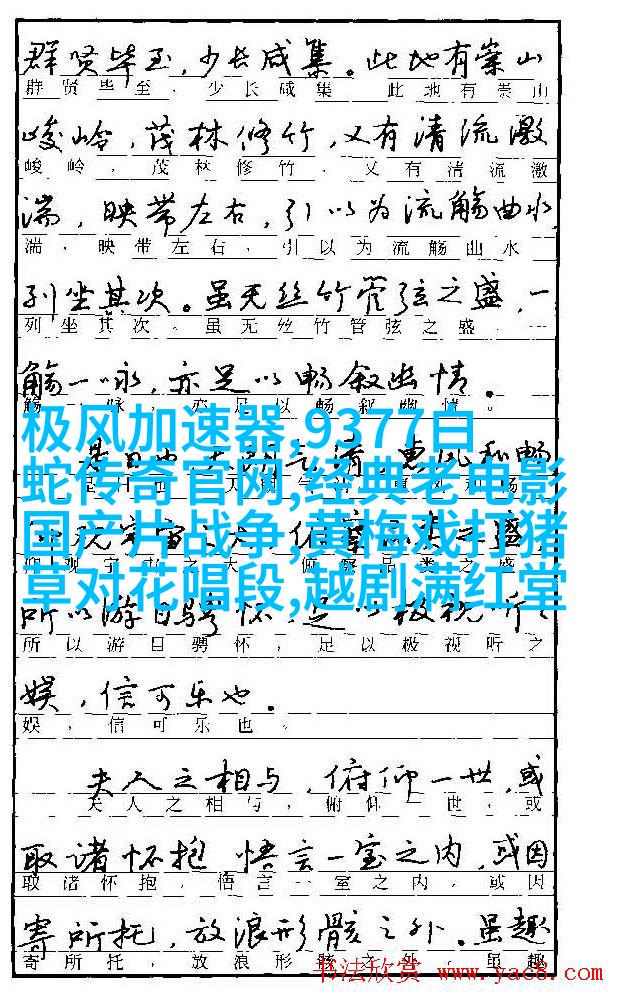 群贤毕至,少长咸集。此地有崇山
群贤毕至,少长咸集。此地有崇山
峻岭,茂林修竹,又有清流激
峻岭,茂林修竹,又有清流激
湍,映带左右,引以为流觞曲水,
湍,映带左右,引以为流觞曲水
列坐其次。虽无丝竹管弦之盛,一
列坐其次。虽无丝竹管弦之盛,一
觞一咏,亦足以畅叙幽情。
觞一咏,亦足以畅叙幽情。
极风加速器,9377白
蛇传奇官网,经典老电影
国产片战争,黄梅戏打猪
草对花唱段,越剧满红堂
所以游目骋怀,足以极视听之
所以游目骋怀,足以极视听之
娱,信可乐也。
娱,信可乐也。
夫人之相与,俯仰一世,或
夫人之相与,俯仰一世,或
取诸怀抱 悟言一室之内,或因
取诸怀抱,悟言一室之内,或因
寄所托,放浪形骸之外。虽趣
寄所托,放浪形骸之外。虽趣
书法欣赏 www.yac8.com